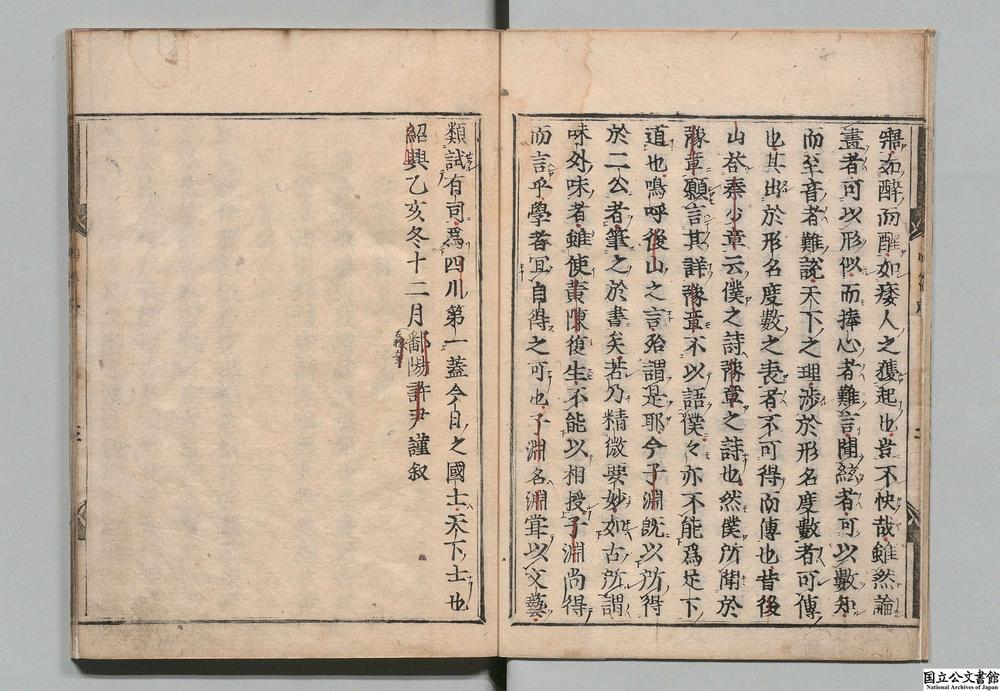 寤如醉而醒如痿人之獲起也豈不快哉雖然論
畫者可以形似而捧心者難言聞絃者可以數知
而至音者難說天下之理涉於形名度數者可傳
也其出於形名度數之表者不可得而傳也昔後
山答秦少章云僕之詩豫章之詩也然僕所聞於
豫章願言其詳豫章不以語僕々亦不能爲足下
道也嗚呼後山之言殆謂是耶今子淵既以所得
於二公者筆之於書矣若乃精微要妙如古所謂
味外味者雖使黄陳復生不能以相授子淵尚得
而言乎學者冝自得之可也子淵名淵嘗以文藝
類試有司爲四川第一蓋今日之國士天下士也
紹興乙亥冬十二月鄱陽許尹謹叙
国立公文書館
National Archives of Japan